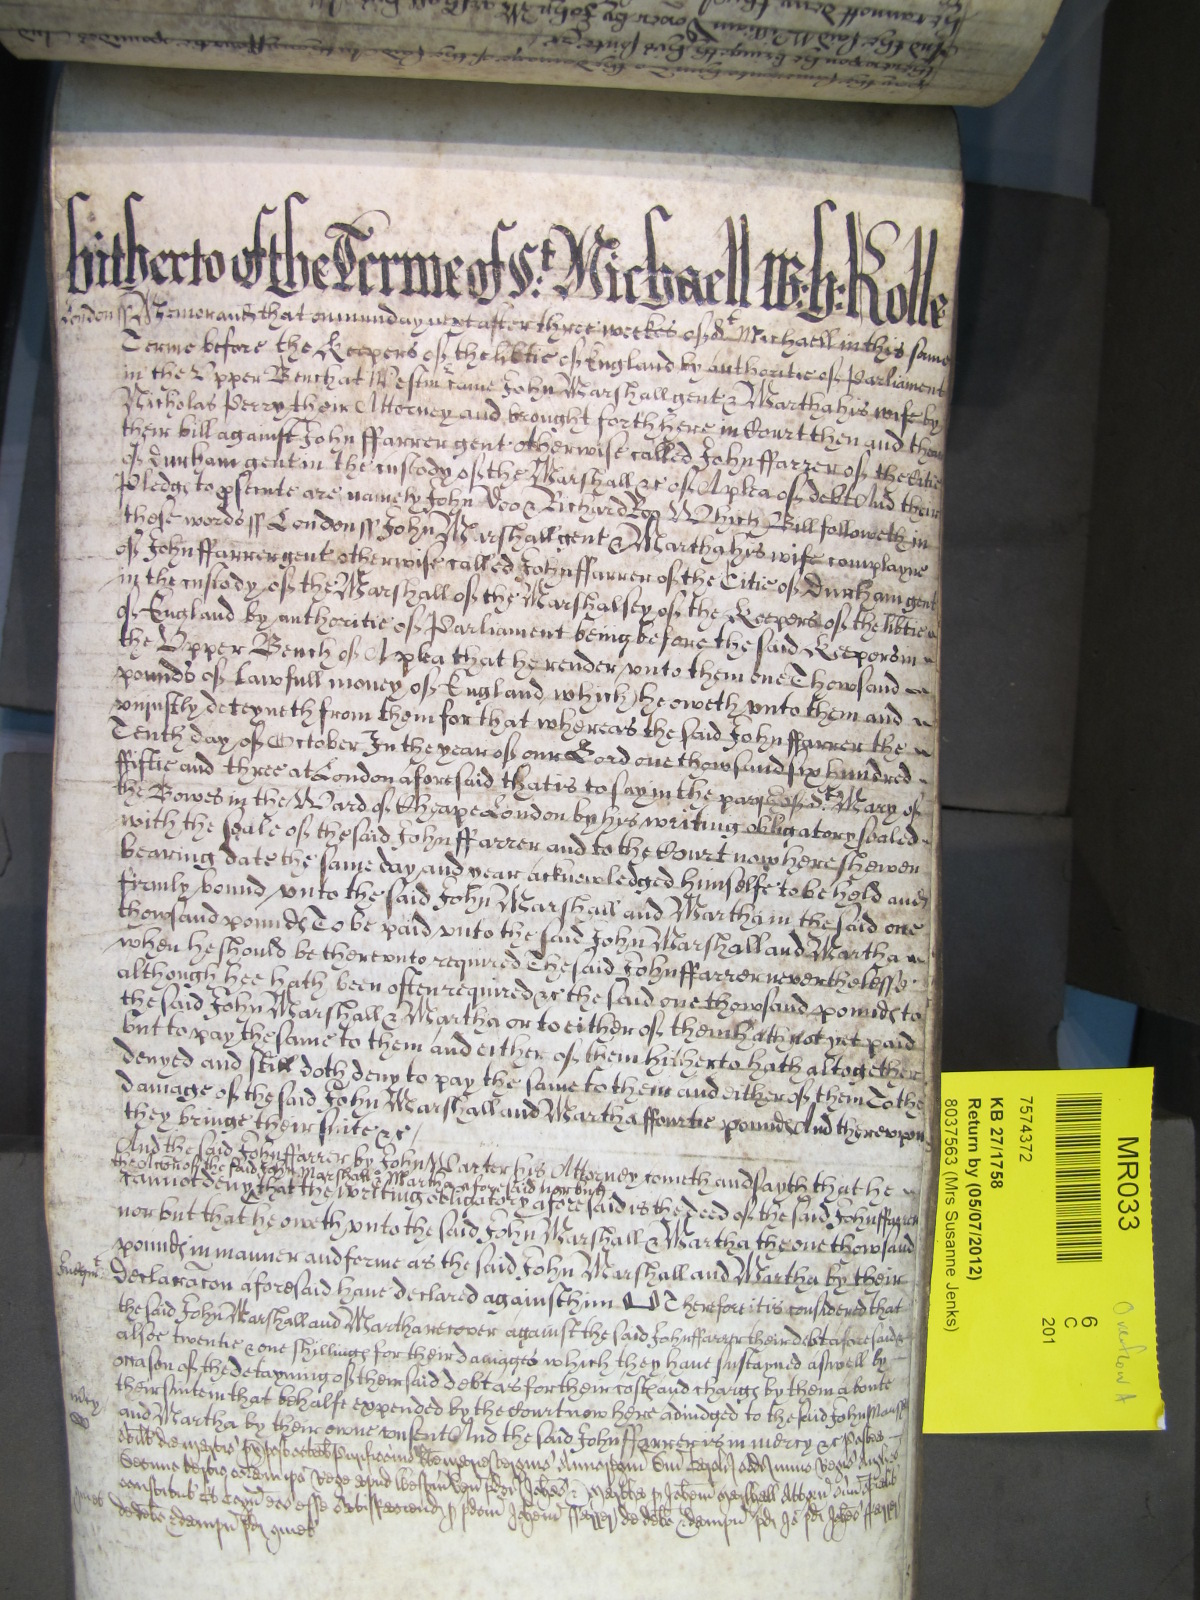 hitherto of the Terme of St. Michaell W: h: Rolle
London ss Memorand that on munday next after three weekes of St Michaell in this same
Terme before the Keepers of the libtie of England by authoritie of Parliament
in the Upper Bench at Westm came John Marshall gent & Martha his wife by
Nicholas Perry their Attorney and brought forth here in Court then and there
their bill against John ffarrer gent otherwise called John ffarrer of the Citie
of Durham gent in the custody of the Marshall &c of A plea of debt And their
Pledge to psecute are namely John Doo & Richard Roo Which Bill followeth in
these words ss London ss John Marshall gent & Martha his wife complayne
of John ffarrer gent otherwise called John ffarrer of the Citie of Durham gent
in the custody of the Marshall of the Marshalsey of the Keepers of the libtie
of England by authoritie of Parliament being before the said Keepers in
the Upper Bench of A plea that he render unto them one Thowsand
pounds of lawfull money of England which he oweth unto them and
uniustly deteyneth from them for that whereas the said John ffarrer the
Tenth day of October In the year of our Lord one thowsand six hundred
ffiftie and three at London aforesaid that is to say in the parish of St Mary of
the Bowes in the Ward of Cheape London by his writing obligatory sealed
with the seale of the said John ffarrer and to the Court now here shewen
bearing date the same day and year acknowledged himselfe to be held and
firmly bound unto the said John Marshall and Martha in the said one
thowsand pounds To be paid unto the said John Marshall and Martha
when he should be thereunto required The said John ffarrer neverthelesse
although hee hath been often required &c the said one thowsand pounds to
the said John Marshall & Martha or to either of them hath not yet paid
but to pay the same to them and either of them hitherto hath altogether
denyed and still doth deny to pay the same to them and either of them To the
damage of the said John Marshall and Martha ffourtie pounds And thereupon
they bringe their suite &c
And the said John ffarrer by John Carter his Attorney cometh and sayth that he
the Action of the said John Marshall & Martha aforesaid nor but
cannot deny that the writing obligatory aforesaid is the deed of the said John ffarrer
nor but that he oweth unto the said John Marshall & Martha the one thowsand
pounds in manner and forme as the said John Marshall and Martha by their
Judgmt Declaracon aforesaid have declared against him Therefore it is considered that
the said John Marshall and Martha recover against the said John ffarrer their debt aforesaid &
alsoe twentie & one shillings for their damages which they have sustayned aswell by
occasion of the deteyning of their said debt as for their costs and charges by them aboute
their suite in that behalfe expended by the Court now here adiudged to the said John Marshall
mercy and Martha by their owne consent And the said John ffarrer is in mercy &c Postea
MR033
7574372
KB 27/1758
Return by (05/07/2012)
8037563 (Mrs Susanne Jenks)
6
C
201
Overflow A